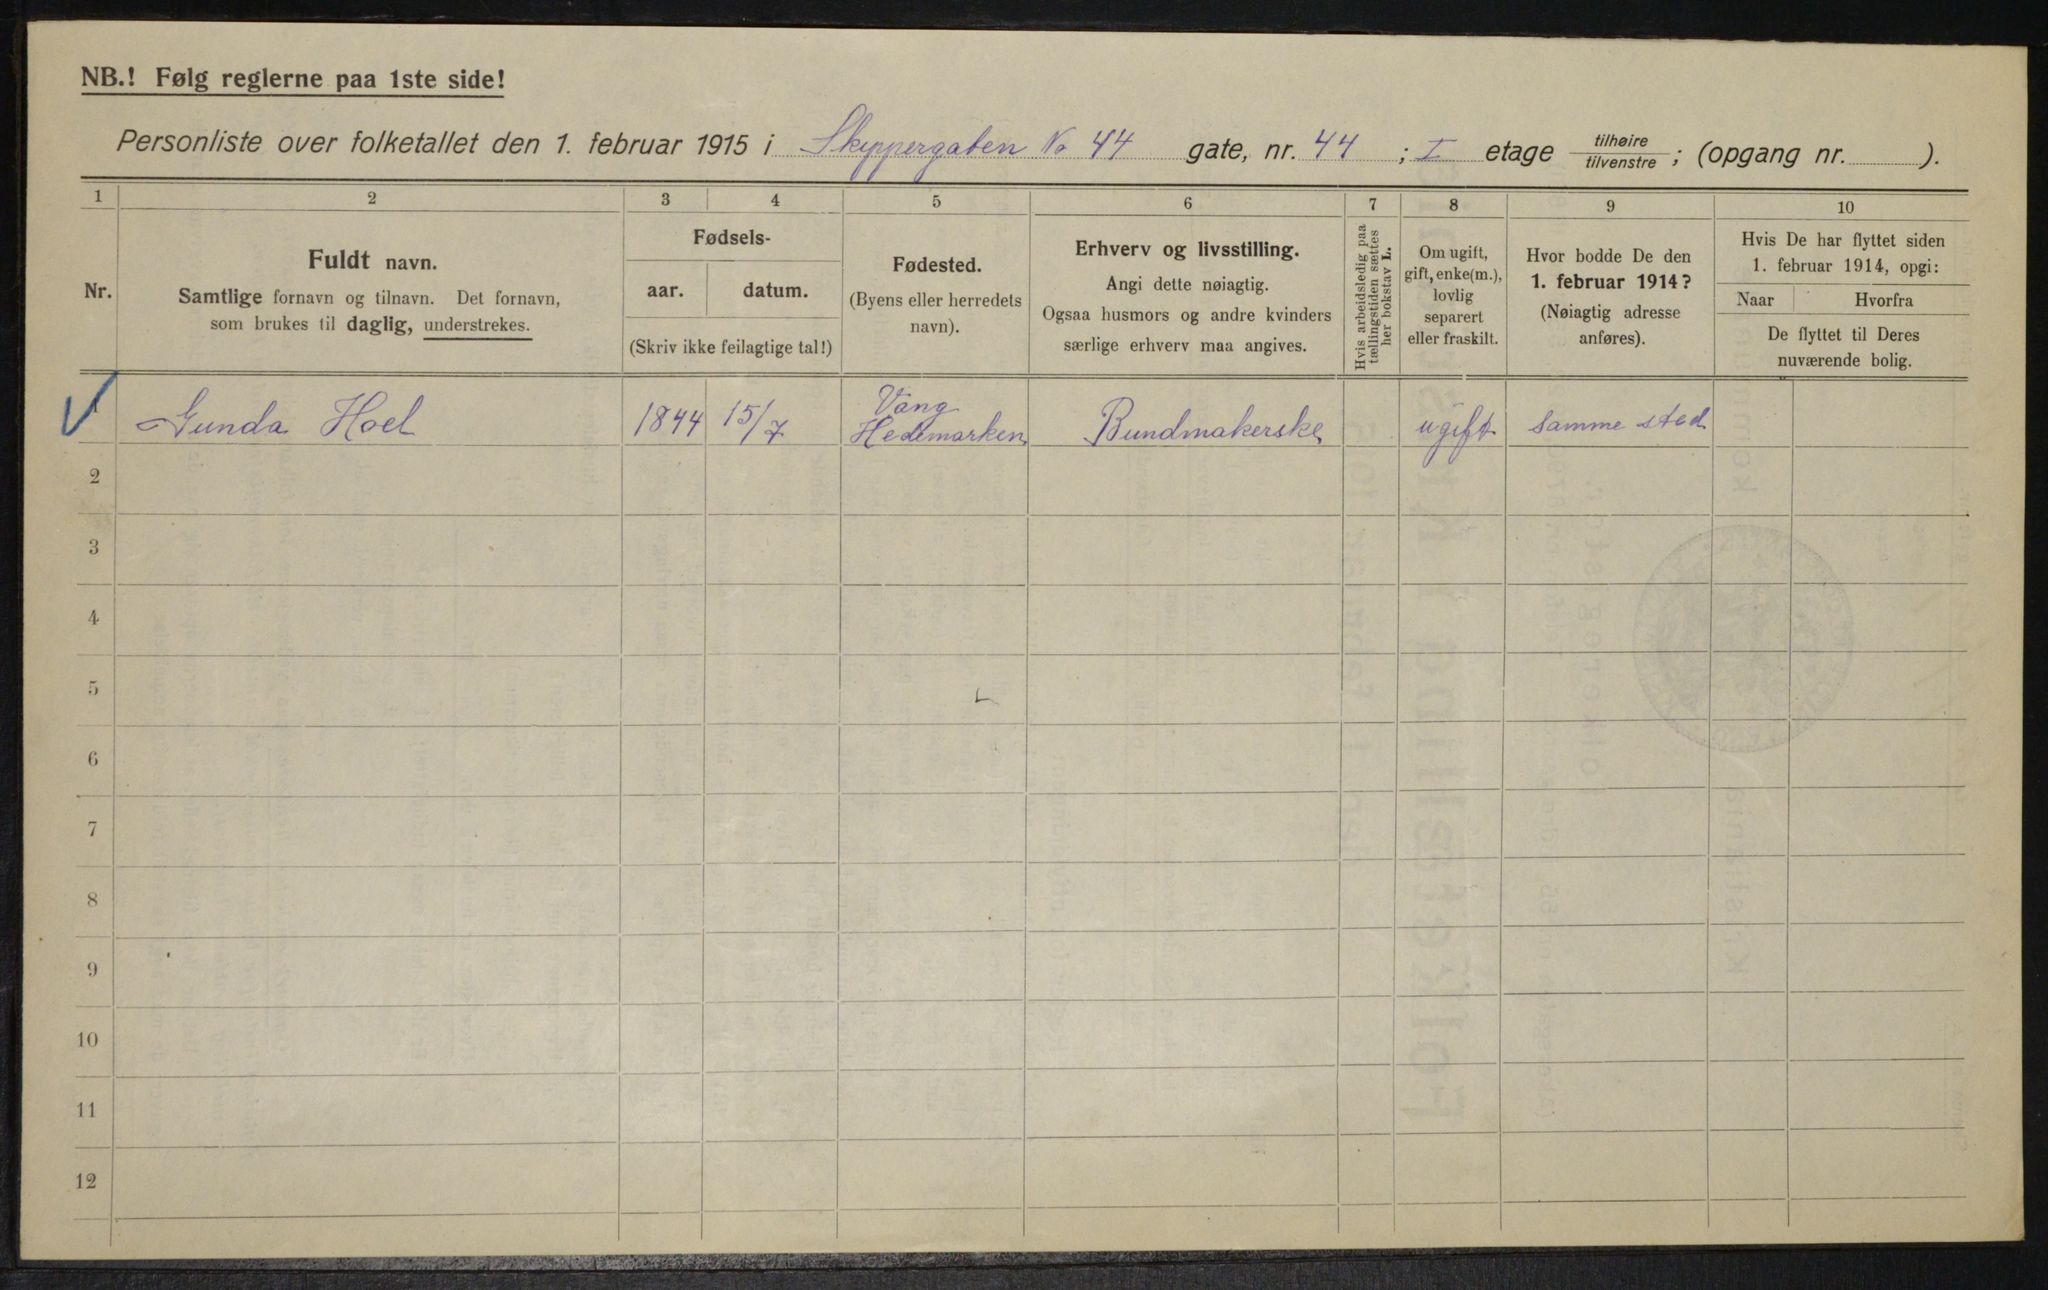 NB.! Følg reglerne paa 1ste side!
Personliste over folketallet den 1. februar 1915 i Skyppergaten No 44 gate, nr. 44 ; I etage tilhøire/tilvenstre ; (opgang nr. ).
1 2 3 4 5 6 7 8 9 10
Nr.
Fuldt navn.
Samtlige fornavn og tilnavn. Det fornavn,
som brukes til daglig, understrekes.
Fødsels-
aar. datum.
(Skriv ikke feilagtige tal!)
Fødested.
(Byens eller herredets
navn).
Erhverv og livsstilling.
Angi dette nøiagtig.
Ogsaa husmors og andre kvinders
særlige erhverv maa angives.
Hvis arbeidsledig paa
tællingstiden sættes
her bokstav L.
Om ugift,
gift, enke(m.),
lovlig
separert
eller fraskilt.
Hvor bodde De den
1. februar 1914?
(Nøiagtig adresse
anføres).
Hvis De har flyttet siden
1. februar 1914, opgi:
Naar Hvorfra
De flyttet til Deres
nuværende bolig.
1 Gunda Hoel 1844 15/7 Vang
Hedemarken Bundmakerske ugift samme sted
2
3
4
5
6
7
8
9
10
11
12